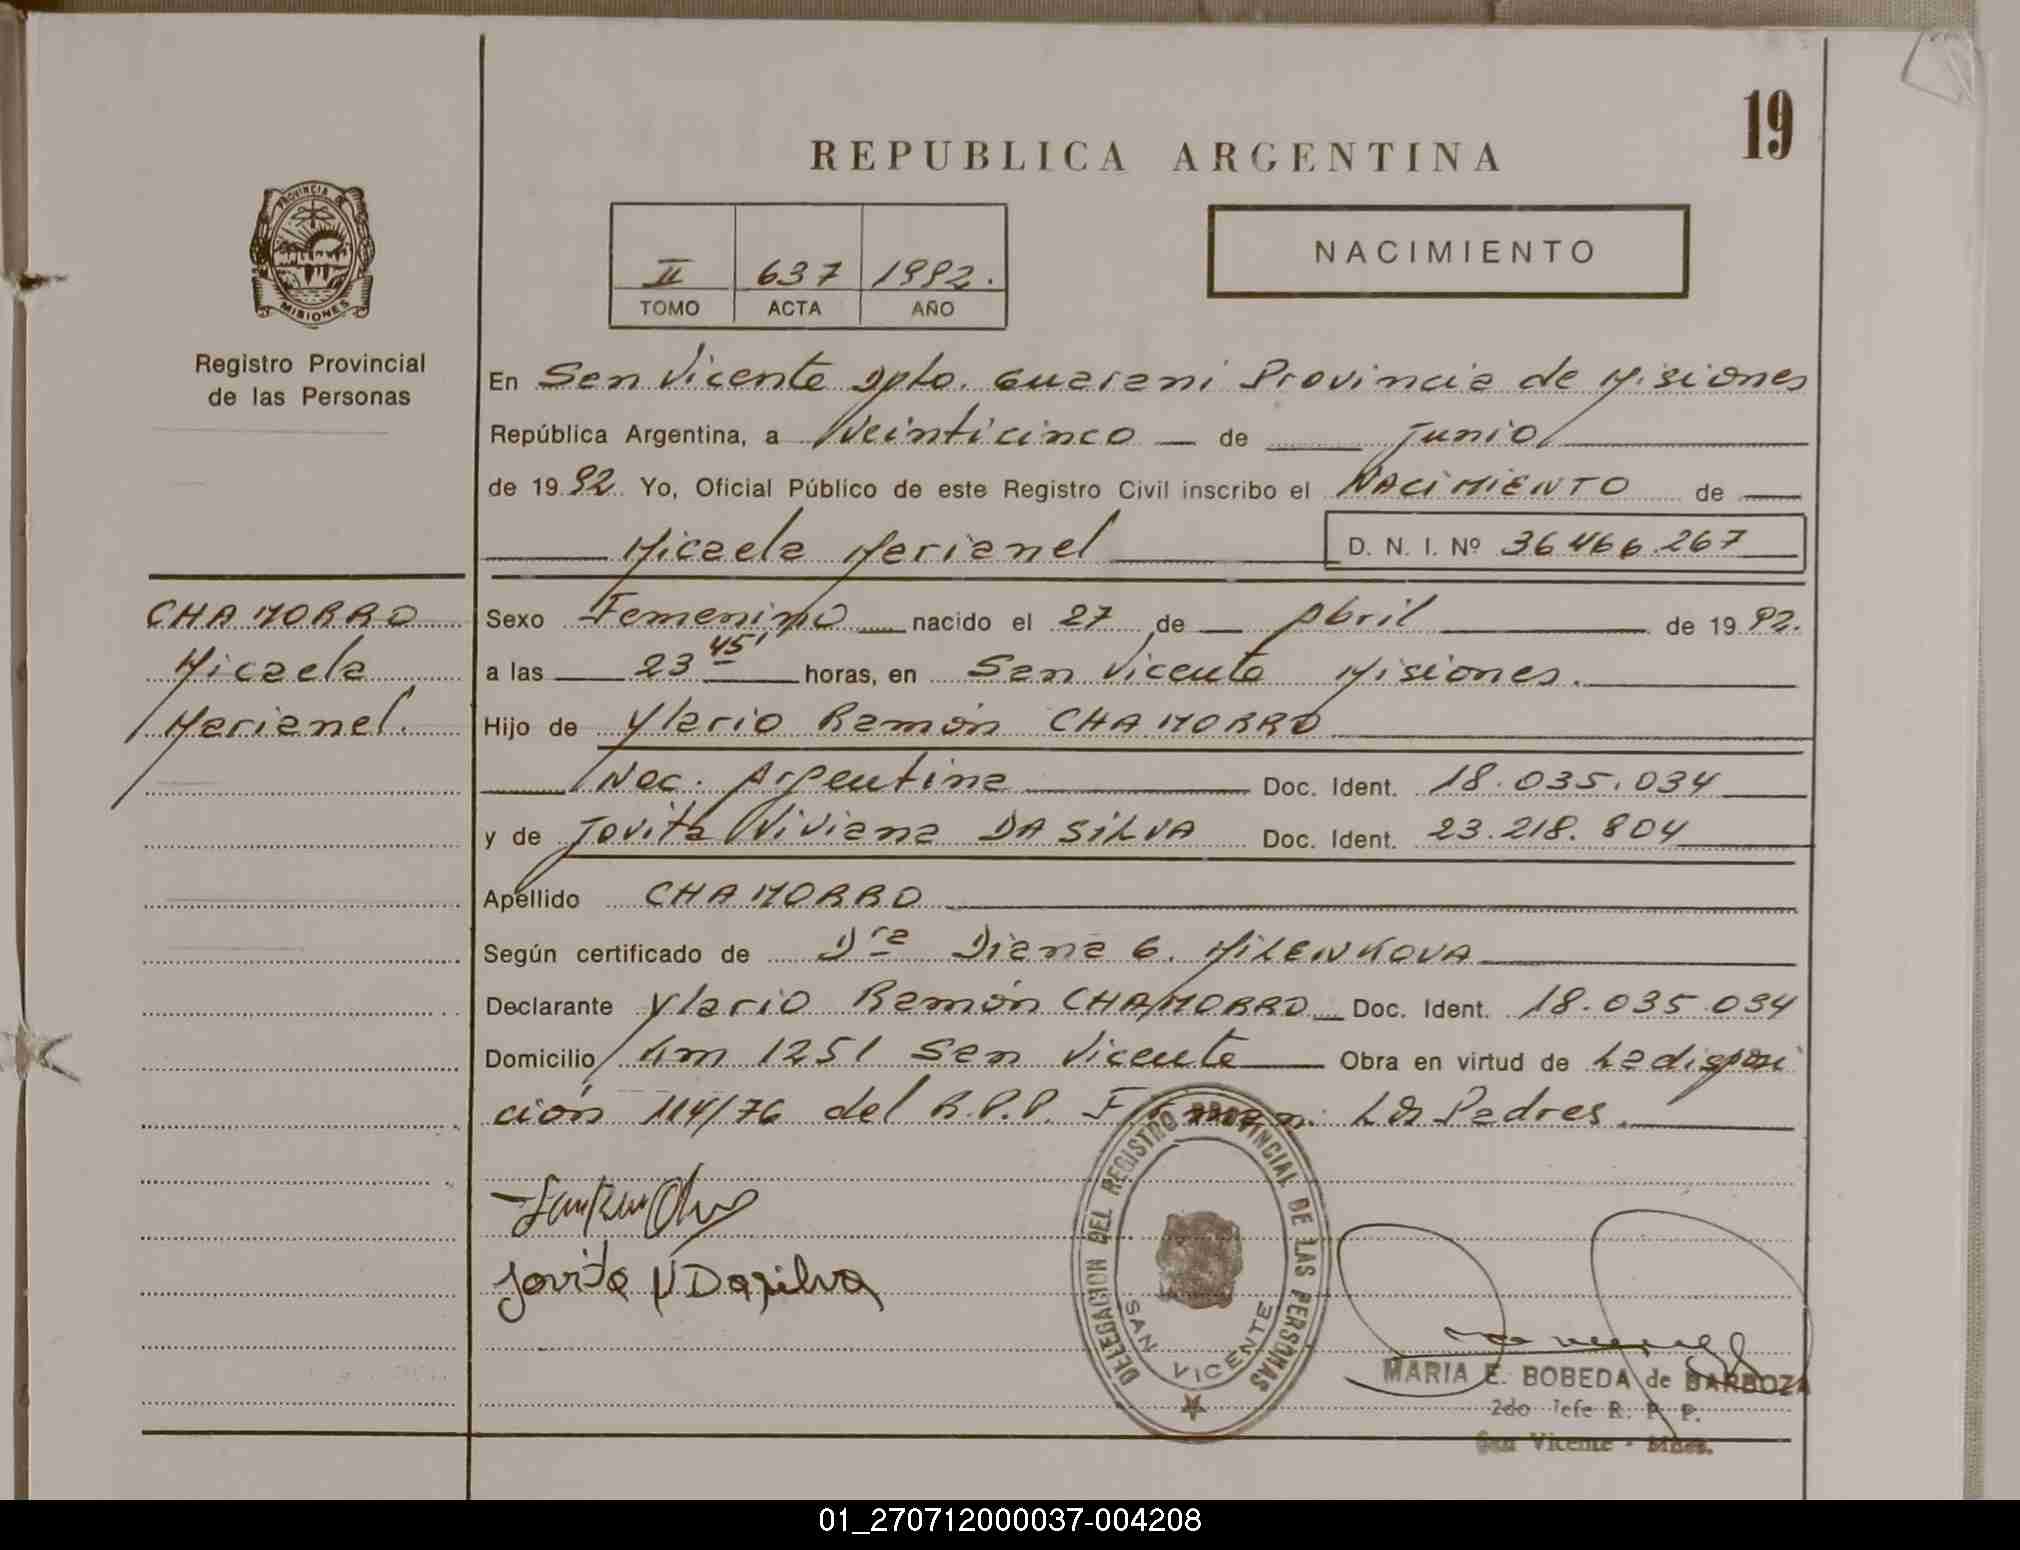 19
REPUBLICA ARGENTINA
PROVINCIA DE
MISIONES
II 637 1992.
TOMO ACTA AÑO
NACIMIENTO
Registro Provincial
de las Personas
En San Vicente Dpto. Guarani Provincia de Misiones
República Argentina, a Veinticinco de Junio
de 1992 Yo, Oficial Público de este Registro Civil inscribo el NACIMIENTO de
Micaela Marianel D. N. I. Nº 36.466.267
CHAMORRO
Micaela
Marianel.
Sexo Femenino nacido el 27 de Abril de 1992.
a las 23 45' horas, en San Vicente Misiones.
Hijo de Ylario Ramón CHAMORRO
Nac. Argentina Doc. Ident. 18.035.034
y de Jovita Viviana DA SILVA Doc. Ident. 23.218.804
Apellido CHAMORRO
Según certificado de Dra Diana G. MILENKOVA
Declarante Ylario Ramón CHAMORRO Doc. Ident. 18.035.034
Domicilio Km 1251 San Vicente Obra en virtud de La disposi
ción 114/76 del R.P.P. Firman: Los Padres.
Jovita V Dasilva
DELEGACION DEL REGISTRO PROVINCIAL DE LAS PERSONAS
SAN VICENTE
MARIA E. BOBEDA de BARBOZA
2do Jefe R. P. P.
San Vicente - Mnes.
01_270712000037-004208